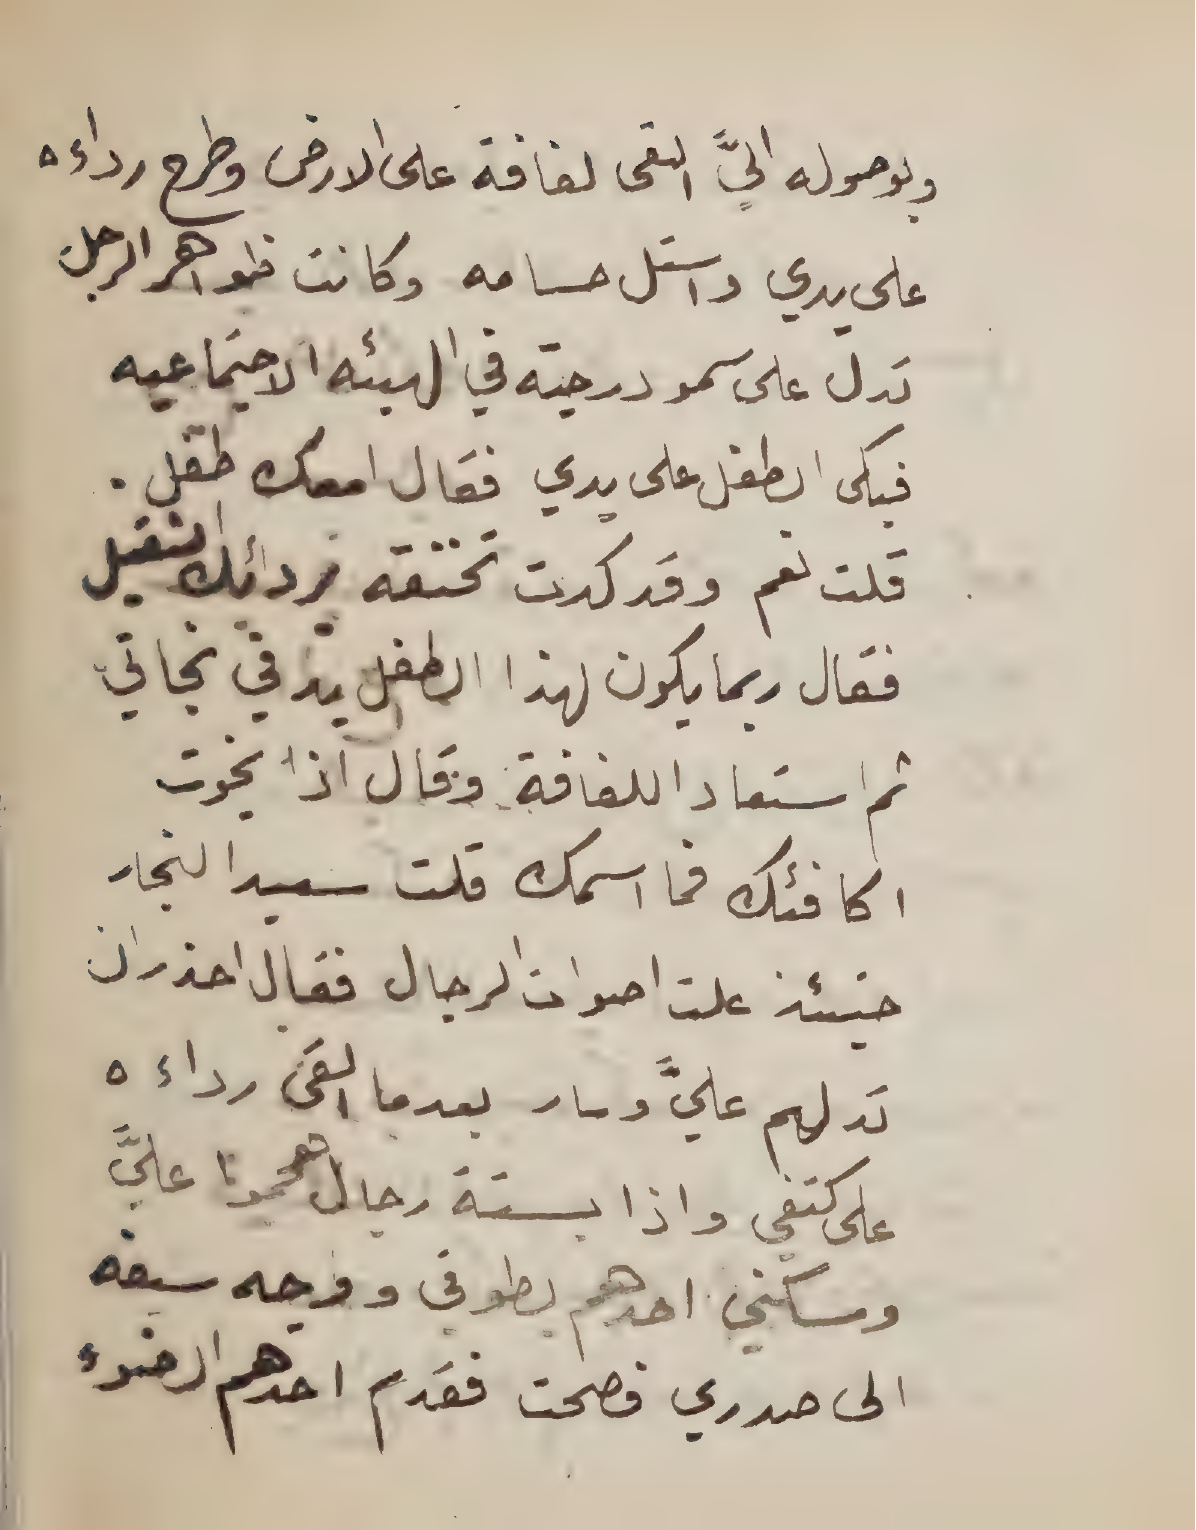 وبوصوله اليَّ القى لفافة على الارض وطرح رداءه
على يدي واستل حسامه وكانت ظواهر الرجل
تدل على سمو درجته في الهيئه الاجتماعيه
فبكى الطفل على يدي فقال امعك طفل .
قلت نعم وقد كدت تخنقه بردائك الثقيل
فقال ربما يكون لهذا الطفل يد في نجاتي
ثم استعاد اللفافة وقال اذا نجوت
اكافئك فما اسمك قلت سعيد النجار
حينئذ علت اصوات الرجال فقال احذر ان
تدلهم عليَّ وسار بعدما القى رداءه
على كتفي واذا بستة رجال هجموا عليَّ
ومسكني احدهم بطوقي ووجه سيفه
الى صدري فصحت فقدم احدهم الضوء